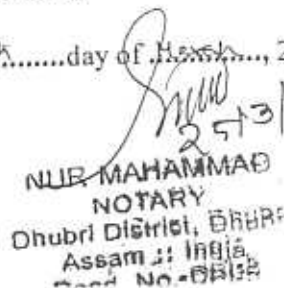 day of March, 2
25/3/
NUR MAHAMMAD
NOTARY
Dhubri District, Dhubri
Assam :: India
Regd. No.-